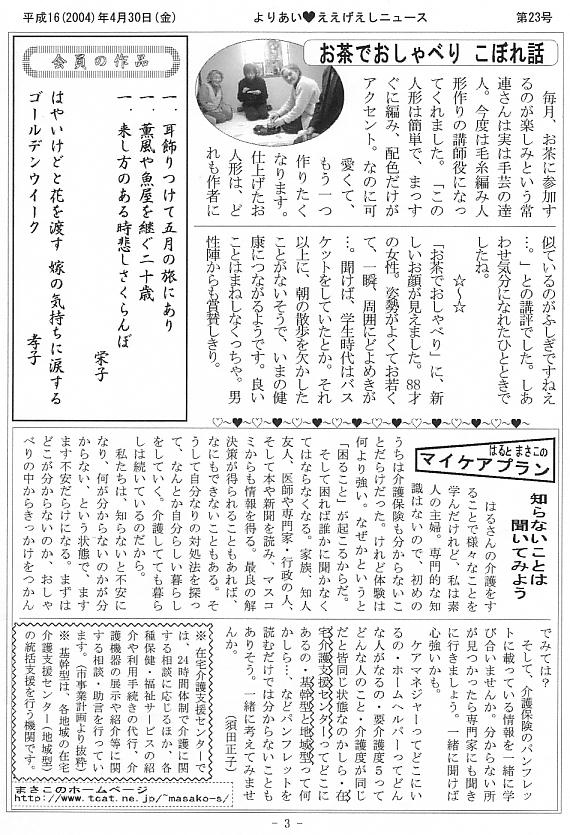 平成16(2004)年4月30日(金)
よりあい♥ええげえしニュース
第23号
お茶でおしゃべり こぼれ話
毎月、お茶に参加す
るのが楽しみという常
連さんは実は手芸の達
人。今度は毛糸編み人
形作りの講師役になっ
てくれました。「この
人形は簡単で、まっす
ぐに編み、配色だけが
アクセント。なのに可
愛くて、
もう一つ
作りたく
なります。
仕上げたお
人形は、ど
れも作者に
似ているのがふしぎですねえ
…。」との講評でした。しあ
わせ気分になれたひとときで
したね。
☆~☆
「お茶でおしゃべり」に、新
しいお顔が見えました。88才
の女性。姿勢がよくてお若く
て、一瞬、周囲にどよめきが
…。聞けば、学生時代はバス
ケットをしていたとか。それ
以上に、朝の散歩を欠かした
ことがないそうで、いまの健
康につながるようです。良い
ことはまねしなくっちゃ。男
性陣からも賞賛しきり。
会員の作品
一．耳飾りつけて五月の旅にあり
一．薫風や魚屋を継ぐ二十歳
一．来し方のある時悲しさくらんぼ
栄子
はやいけどと花を渡す 嫁の気持ちに涙する
ゴールデンウイーク
孝子
はるとまさこの
マイケアプラン
知らないことは
聞いてみよう
はるさんの介護をす
ることで様々なことを
学んだけれど、私は素
人の主婦。専門的な知
識はないので、初めの
うちは介護保険も分からないこ
とだらけだった。けれど体験は
何より強い。なぜかというと
「困ること」が起こるからだ。
そして困れば誰かに聞かなく
てはならなくなる。家族、知人
友人、医師や専門家・行政の人、
そして本や新聞を読み、マスコ
ミからも情報を得る。最良の解
決策が得られることもあれば、
なにもできないこともある。そ
うして自分なりの対処法を探っ
て、なんとか自分らしい暮らし
をしていく。介護しても暮ら
しは続いているのだから。
私たちは、知らないと不安に
なり、何が分からないのかが分
からない、という状態で、ます
ます不安だらけになる。まずは
どこが分からないのか、おしゃ
べりの中からきっかけをつかん
でみては？
そして、介護保険のパンフレッ
トに載っている情報を一緒に学
び合いませんか。分からない所
が見つかったら専門家にも聞き
に行きましょう。一緒に聞けば
心強いかも。
ケアマネージャーってどこにい
るの・ホームヘルパーってどん
な人がなるの・要介護度5って
どんな人のこと・介護度が同じ
だと皆同じ状態なのかしら・在
宅介護支援センターってどこに
あるの・基幹型と地域型って何
かしら…などパンフレットを
読むだけでは分からないことが
ありそう。一緒に考えてみませ
んか。
（須田正子）
※在宅介護支援センターで
は、24時間体制で介護に関
する相談に応じるほか、各
種保健・福祉サービスの紹
介や利用手続きの代行、介
護機器の展示や紹介等に関
する相談・助言を行ってい
ます。（市事業計画より抜粋）
※基幹型は、各地域の在宅
介護支援センター（地域型）
の統括支援を行う機関です。
まさこのホームページ
http://www.tcat.ne.jp/~masako-s/
- 3 -